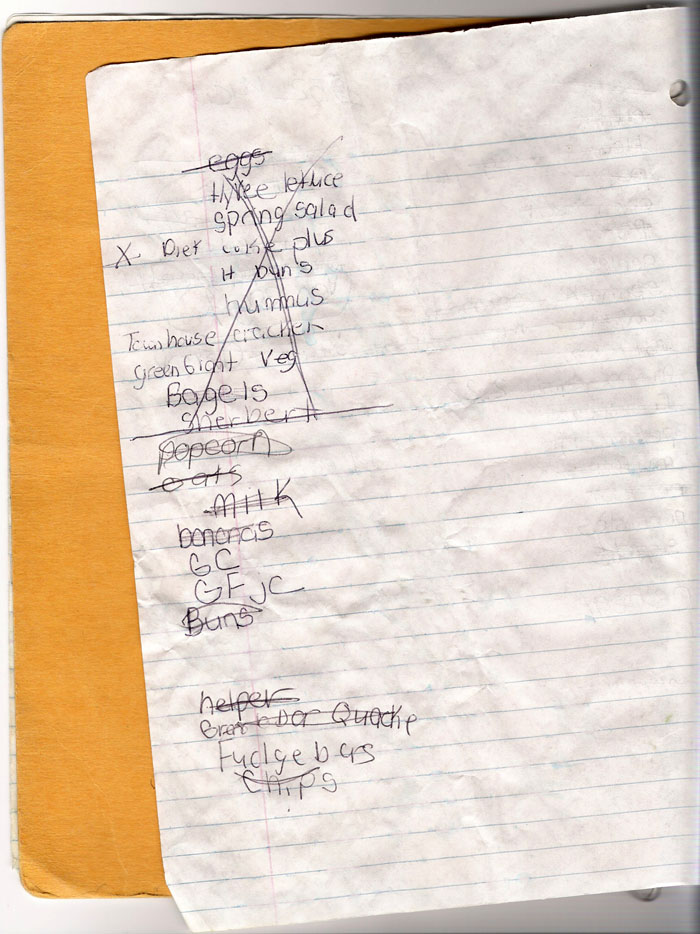 eggs
lettuce
spring salad
X- Diet coke plus
H buns
hummus
Townhouse cracker
green Gight veg
Bagels
Sherbert
popcorn
oats
Milk
bananas
GC
GF JC
Buns
helper
bar Quacke
Fudge bars
Chips